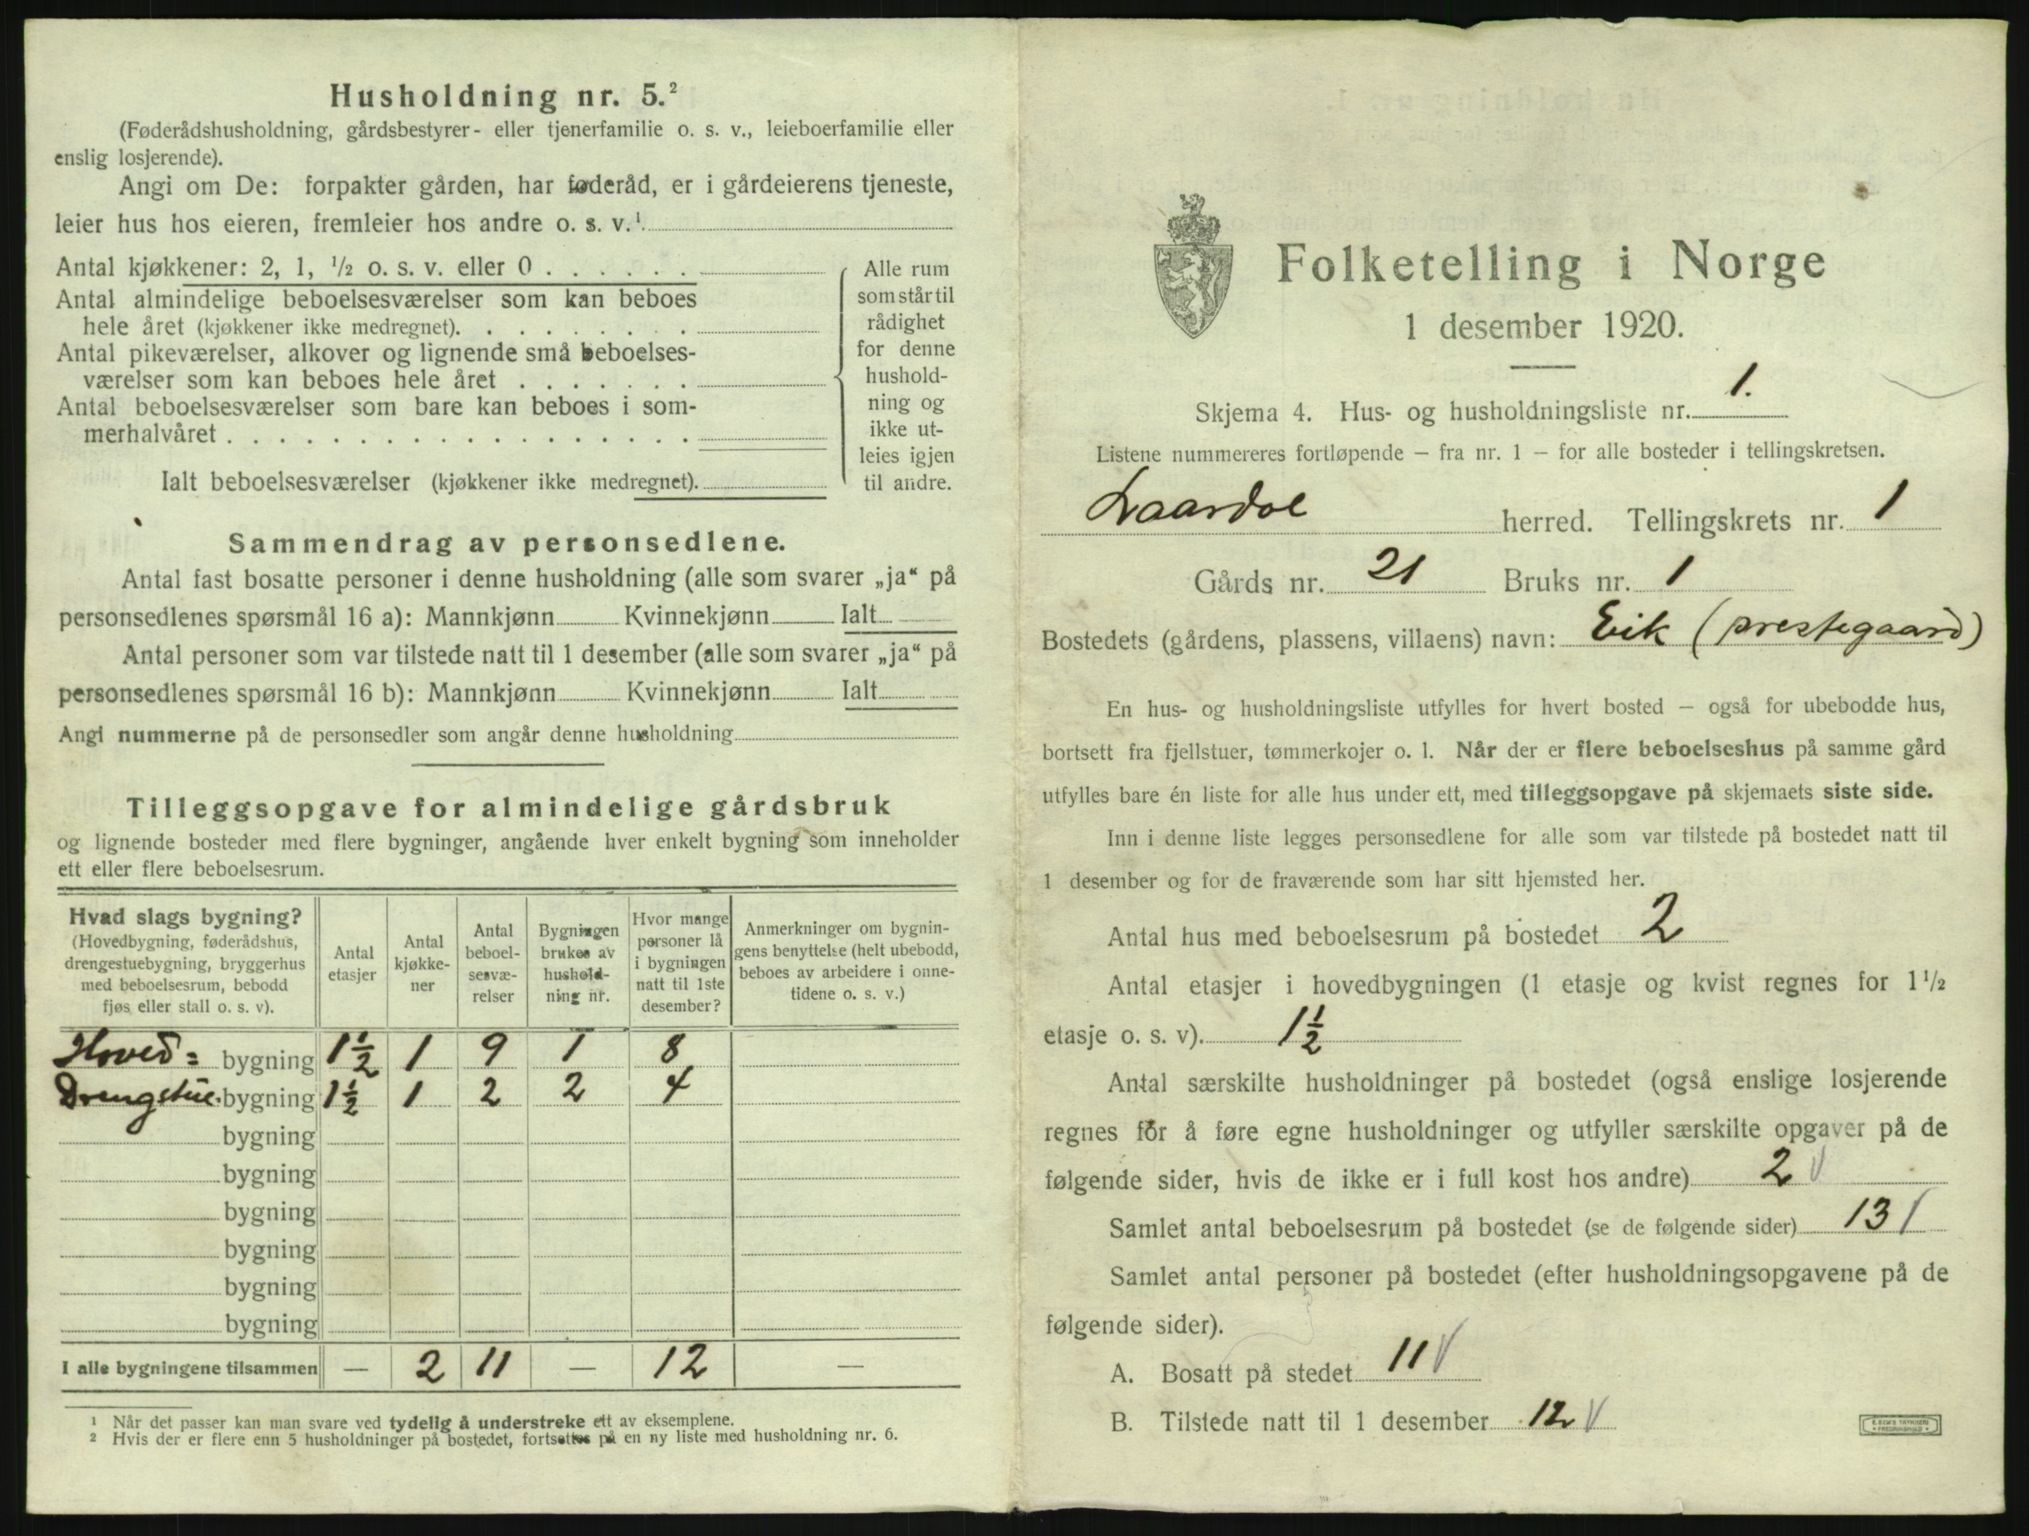 Husholdning nr. 5.²
(Føderådshusholdning, gårdsbestyrer- eller tjenerfamilie o. s. v., leieboerfamilie eller
enslig losjerende).
Angi om De: forpakter gården, har føderåd, er i gårdeierens tjeneste,
leier hus hos eieren, fremleier hos andre o. s. v.¹
Antal kjøkkener: 2, 1, ½ o. s. v. eller 0 . . . . . .
Antal almindelige beboelsesværelser som kan beboes
hele året (kjøkkener ikke medregnet). . . . . . . . .
Antal pikeværelser, alkover og lignende små beboelses-
værelser som kan beboes hele året . . . . . . .
Antal beboelsesværelser som bare kan beboes i som-
merhalvåret . . . . . . . . . . . . . . . . . .
Ialt beboelsesværelser (kjøkkener ikke medregnet).
Alle rum
som står til
rådighet
for denne
hushold-
ning og
ikke ut-
leies igjen
til andre.
Sammendrag av personsedlene.
Antal fast bosatte personer i denne husholdning (alle som svarer „ja“ på
personsedlenes spørsmål 16 a): Mannkjønn Kvinnekjønn Ialt
Antal personer som var tilstede natt til 1 desember (alle som svarer „ja“ på
personsedlenes spørsmål 16 b): Mannkjønn Kvinnekjønn Ialt
Angi nummerne på de personsedler som angår denne husholdning
Tilleggsopgave for almindelige gårdsbruk
og lignende bosteder med flere bygninger, angående hver enkelt bygning som inneholder
ett eller flere beboelsesrum.
Hvad slags bygning?
(Hovedbygning, føderådshus,
drengestuebygning, bryggerhus
med beboelsesrum, bebodd
fjøs eller stall o. s. v).
Antal
etasjer
Antal
kjøkke-
ner
Antal
beboel-
sesvæ-
relser
Bygningen
brukes av
hushold-
ning nr.
Hvor mange
personer lå
i bygningen
natt til 1ste
desember?
Anmerkninger om bygnin-
gens benyttelse (helt ubebodd,
beboes av arbeidere i onne-
tidene o. s. v.)
Hoved= bygning 1½ 1 9 1 8
Drengstue. bygning 1½ 1 2 2 4
bygning
bygning
bygning
bygning
bygning
bygning
I alle bygningene tilsammen — 2 11 — 12 —
¹ Når det passer kan man svare ved tydelig å understreke ett av eksemplene.
² Hvis der er flere enn 5 husholdninger på bostedet, fortsettes på en ny liste med husholdning nr. 6.
Folketelling i Norge
1 desember 1920.
Skjema 4. Hus- og husholdningsliste nr. 1.
Listene nummereres fortløpende — fra nr. 1 — for alle bosteder i tellingskretsen.
Laardal herred. Tellingskrets nr. 1
Gårds nr. 21 Bruks nr. 1
Bostedets (gårdens, plassens, villaens) navn: Eik (prestegaard)
En hus- og husholdningsliste utfylles for hvert bosted — også for ubebodde hus,
bortsett fra fjellstuer, tømmerkojer o. l. Når der er flere beboelseshus på samme gård
utfylles bare én liste for alle hus under ett, med tilleggsopgave på skjemaets siste side.
Inn i denne liste legges personsedlene for alle som var tilstede på bostedet natt til
1 desember og for de fraværende som har sitt hjemsted her.
Antal hus med beboelsesrum på bostedet 2
Antal etasjer i hovedbygningen (1 etasje og kvist regnes for 1½
etasje o. s. v). 1½
Antal særskilte husholdninger på bostedet (også enslige losjerende
regnes for å føre egne husholdninger og utfyller særskilte opgaver på de
følgende sider, hvis de ikke er i full kost hos andre) 2 √
Samlet antal beboelsesrum på bostedet (se de følgende sider) 13 /
Samlet antal personer på bostedet (efter husholdningsopgavene på de
følgende sider).
A. Bosatt på stedet 11 √
B. Tilstede natt til 1 desember 12 √